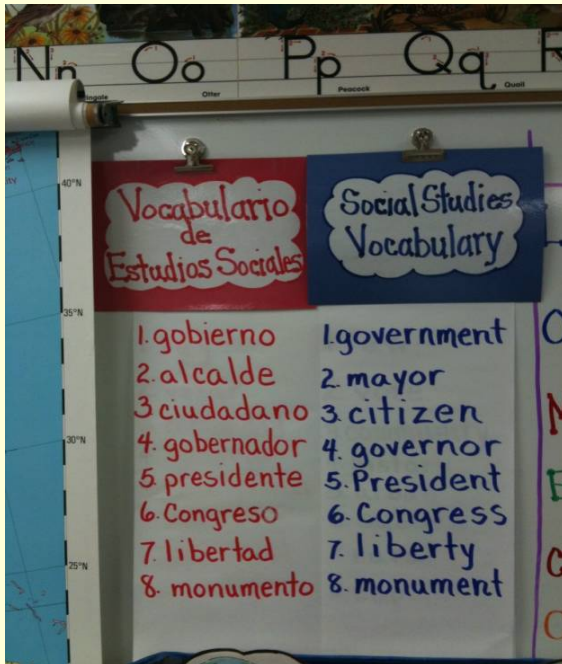 Nn Oo Pp Qq R
Otter Peacock Quail
40°N
35°N
30°N
25°N
Vocabulario
de
Estudios Sociales
1. gobierno
2. alcalde
3 ciudadano
4. gobernador
5. presidente
6. Congreso
7. libertad
8. monumento
Social Studies
Vocabulary
1. government
2. mayor
3. citizen
4. governor
5. President
6. Congress
7. liberty
8. monument